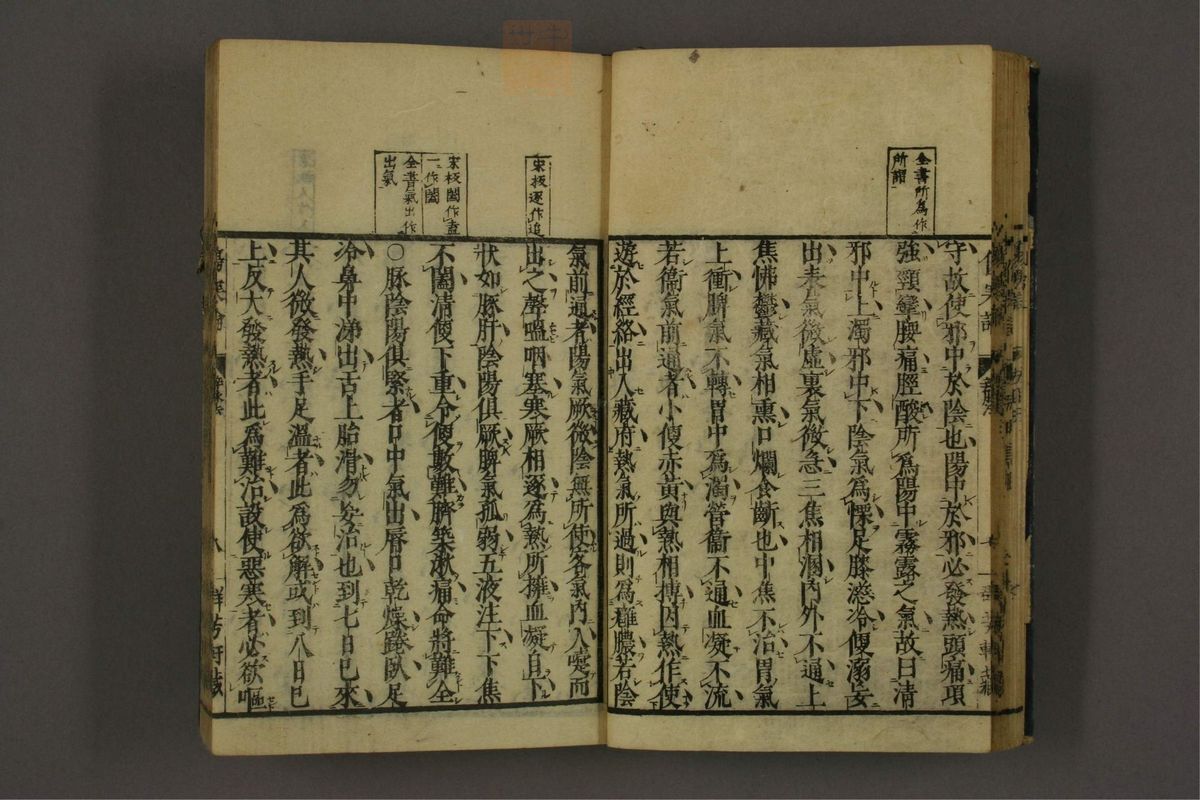 全書所為作
所謂
守故使邪中於陰也陽中於邪必發熱頭痛項
強頸攣腰痛脛酸所為陽中霧露之氣故曰清
邪中上濁邪中下陰氣為慄足膝逆冷便溺妄
出表氣微虛裏氣微急三焦相溷內外不通上
焦怫鬱藏氣相熏口爛食斷也中焦不治胃氣
上衝脾氣不轉胃中為濁營衞不通血凝不流
若衞氣前通者小便赤黃與熱相摶因熱作使
遊於經絡出入藏府熱氣所過則為癰膿若陰
宋板逐作追
宋板闔作盍
一作闔
全書氣出作
出氣
氣前通者陽氣厥微陰無所使客氣內入嚏而
出之聲嗢咽塞寒厥相逐為熱所擁血凝自下
狀如豚肝陰陽俱厥脾氣孤弱五液注下下焦
不闔清便下重令便數難臍築湫痛命將難全
○脉陰陽俱緊者口中氣出唇口乾燥踡臥足
冷鼻中涕出舌上胎滑勿妄治也到七日已來
其人微發熱手足溫者此為欲解或到八日已
上反大發熱者此為難治設使惡寒者必欲嘔